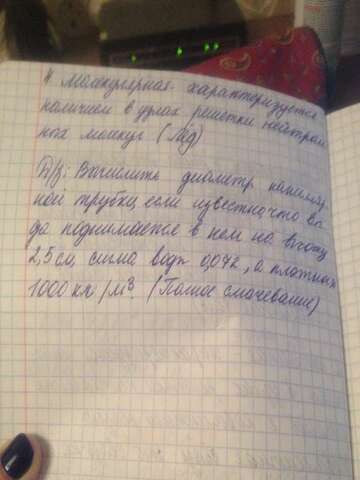 * молекулярная - характеризуется
наличием в узлах решетки нейтраль
ных молекул (лёд)
Д/з: Вычислить диаметр капилляр
ной трубки, если известно что во
да поднимается в нем на высоту
2,5 см, сигма воды 0,072, а плотность
1000 кг/м³. (Полное смачевание)